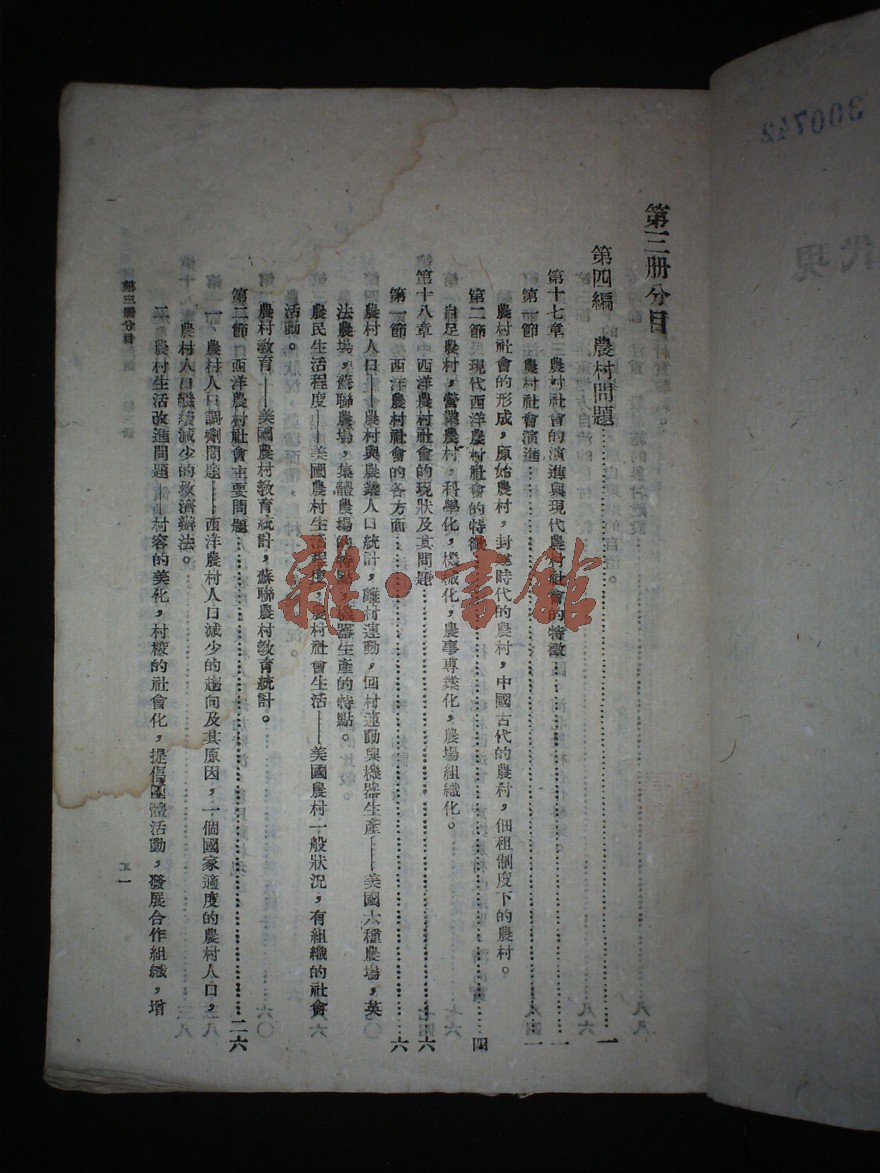 第三册分目
第四編　農村問題……一
第十七章　農村社會的演進與現代農村社會的特徵……一
第一節　農村社會演進……一
農村社會的形成，原始農村，封建時代的農村，中國古代的農村，佃租制度下的農村。
第二節　現代西洋農村社會的特徵……四
自足農村，營業農村，科學化，機械化，農事專業化，農場組織化。
第十八章　西洋農村社會的現狀及其問題……六
第一節　西洋農村社會的各方面……六
農村人口——農村與農業人口統計，離村運動，回村運動與機器生產——美國大種農場，英
法農場，蘇聯農場，集體農場的特點，機器生產的特點。
農民生活程度——美國農村生活程度，農村社會生活——美國農村一般狀況，有組織的社會
活動。
農村教育——美國農村教育統計，蘇聯農村教育統計。
第二節　西洋農村社會主要問題……二六
一、農村人口調劑問題——西洋農村人口減少的趨向及其原因，一個國家適度的農村人口，
農村人口繼續減少的救濟辦法。
二、農村生活改進問題——村容的美化，村校的社會化，提倡團體活動，發展合作組織，增
第三册分目
一
雜·書館
300742
現代